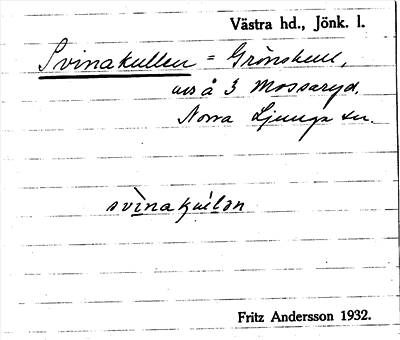 Västra hd., Jönk. l.
Svinakullen = Grönskull,
urs å 3 Mossaryd,
Norra Ljunga sn.
svìnakúlon
Fritz Andersson 1932.